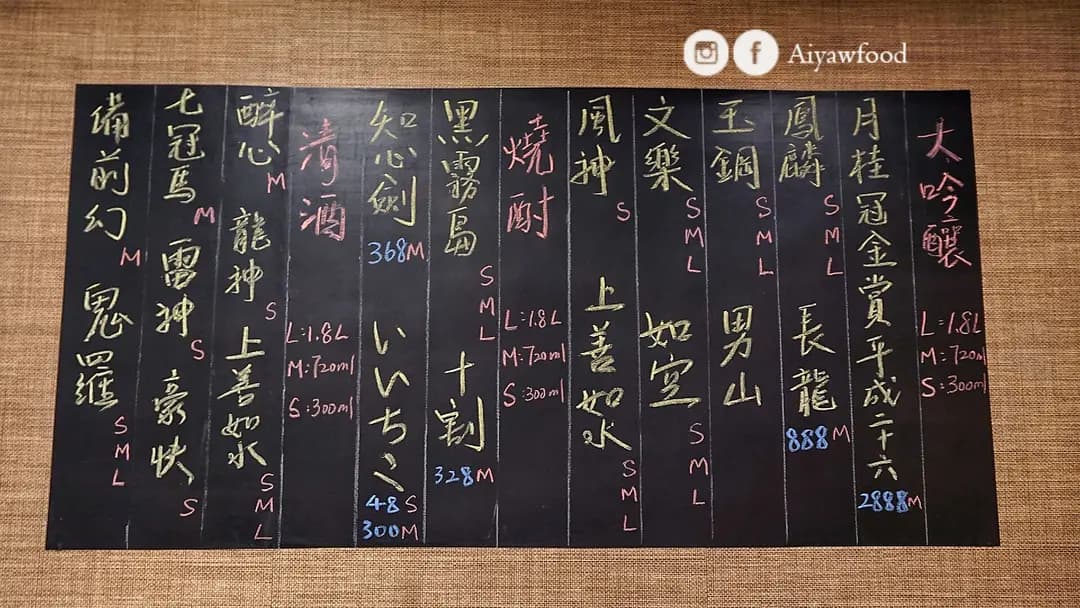 Aiyawfood
大吟釀
L:1.8L
M:720ml
S:300ml
月桂冠金賞平成二十六
2888M
鳳麟
S
M
L
長龍
888M
玉鋼
S
M
L
男山
文樂
S
M
L
如空
S
M
L
風神
S
上善如水
S
M
L
燒酎
L:1.8L
M:720ml
S:300ml
黑霧島
S
M
L
十割
328M
知心劍
368M
いいちこ
48S
300M
清酒
L:1.8L
M:720ml
S:300ml
醉心
M
龍神
S
上善如水
S
M
L
七冠馬
M
雷神
S
豪快
S
備前幻
M
鬼羅
S
M
L